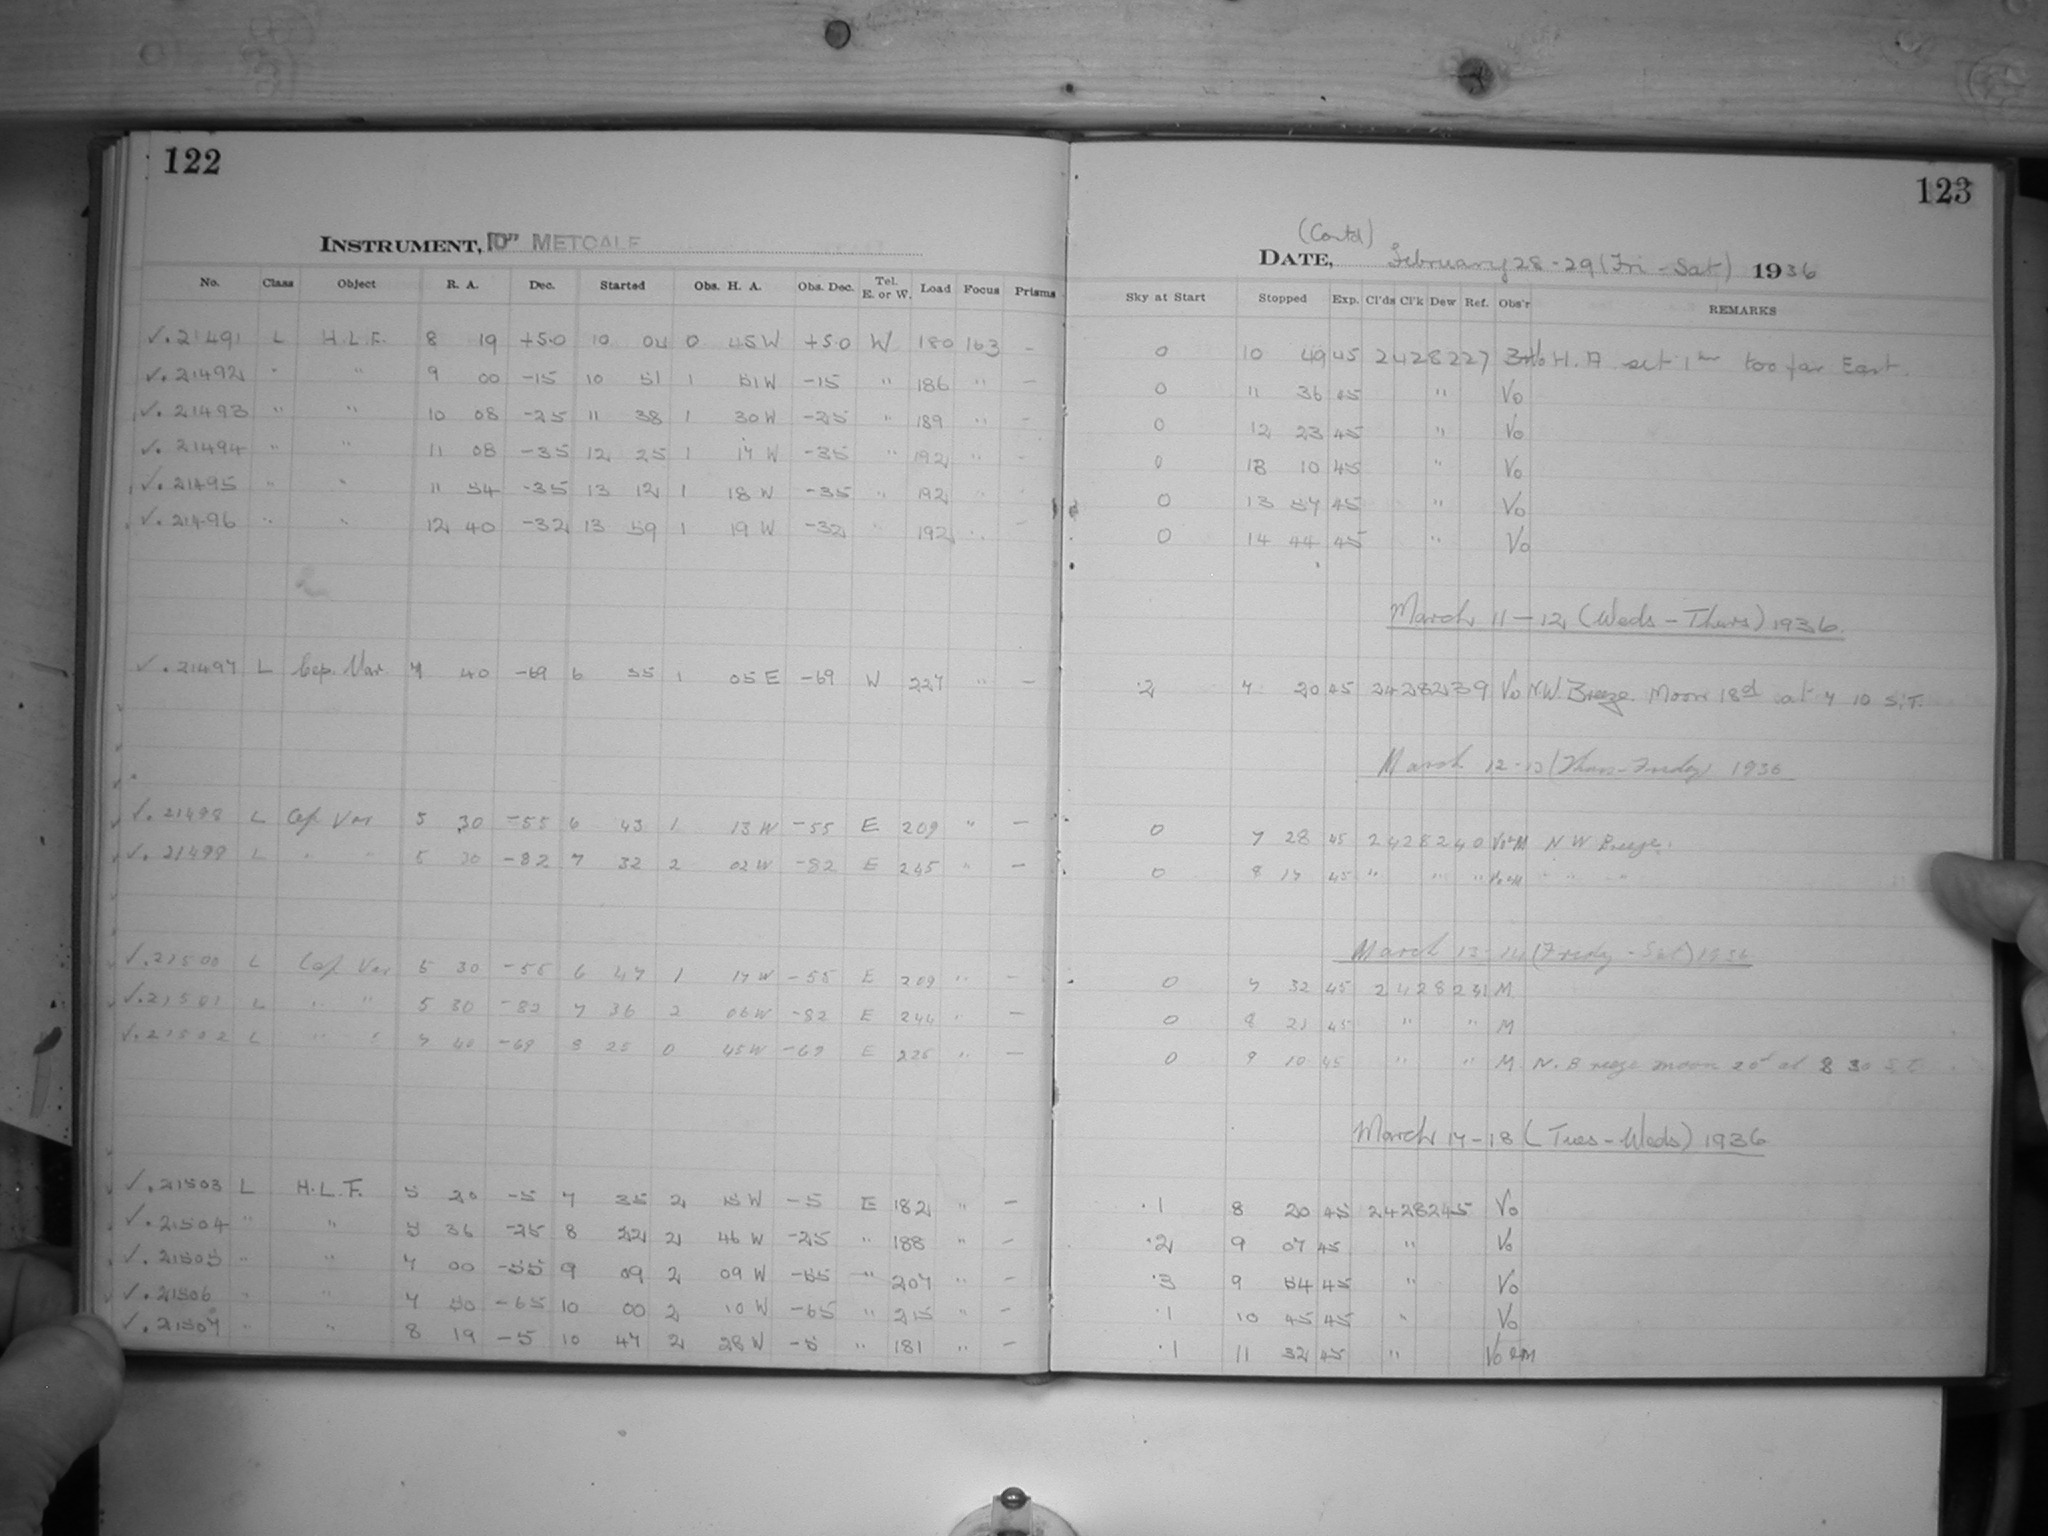 122
123
INSTRUMENT, 10" METCALF
(Contd)
DATE, February 28-29 (Fri - Sat) 1936
No. Class Object R. A. Dec. Started Obs. H. A. Obs. Dec. Tel. E. or W. Load Focus Prisms Sky at Start Stopped Exp. Cl'ds Cl'k Dew Ref. Obs'r REMARKS
✓. 21491 L H.L.F. 8 19 +5.0 10 04 0 45 W +5.0 W 180 163 — 0 10 49 45 2428227 H.A set 1 hr too far East.
✓. 21492 " " 9 00 -15 10 51 1 51 W -15 " 186 " — 0 11 36 45 " Vo
✓. 21493 " " 10 08 -25 11 38 1 30 W -25 " 189 " — 0 12 23 45 " Vo
✓. 21494 " " 11 08 -35 12 25 1 17 W -35 " 192 " — 0 13 10 45 " Vo
✓. 21495 " " 11 54 -35 13 12 1 18 W -35 " 192 " 0 13 57 45 " Vo
✓. 21496 " " 12 40 -32 13 59 1 19 W -32 " 192 " — 0 14 44 45 " Vo
March 11 - 12 (Weds - Thurs) 1936.
✓. 21497 L Cep. Var. 7 40 -69 6 35 1 05 E -69 W 227 " — .2 7 20 45 2428239 Vo N.W. Breeze. Moon 18d at 7 10 S.T.
March 12-13 (Thurs - Friday) 1936
✓. 21498 L Cep. Var 5 30 -55 6 43 1 13 W -55 E 209 " — 0 7 28 45 2428240 Vo+M N W Breeze.
✓. 21499 L " " 5 30 -82 7 32 2 02 W -82 E 245 " — 0 8 17 45 " " " Vo+M " " "
March 13-14 (Friday - Sat) 1936
✓. 21500 L Cep. Var 5 30 -55 6 47 1 17 W -55 E 209 " — 0 7 32 45 2428241 M
✓. 21501 L " " 5 30 -82 7 36 2 06 W -82 E 244 " — 0 8 21 45 " " M
✓. 21502 L " " 7 40 -69 8 25 0 45 W -69 E 225 " — 0 9 10 45 " " M N. Breeze moon 20d at 8 30 S.T.
March 17-18 (Tues - Weds) 1936
✓. 21503 L H.L.F. 5 20 -5 7 35 2 15 W -5 E 182 " — .1 8 20 45 2428245 Vo
✓. 21504 " " 5 36 -25 8 22 2 46 W -25 " 188 " — .2 9 07 45 " Vo
✓. 21505 " " 7 00 -55 9 09 2 09 W -55 " 207 " — .3 9 54 45 " Vo
✓. 21506 " " 7 50 -65 10 00 2 10 W -65 " 215 " — .1 10 45 45 " Vo
✓. 21507 " " 8 19 -5 10 47 2 28 W -5 " 181 " — .1 11 32 45 " Vo+M